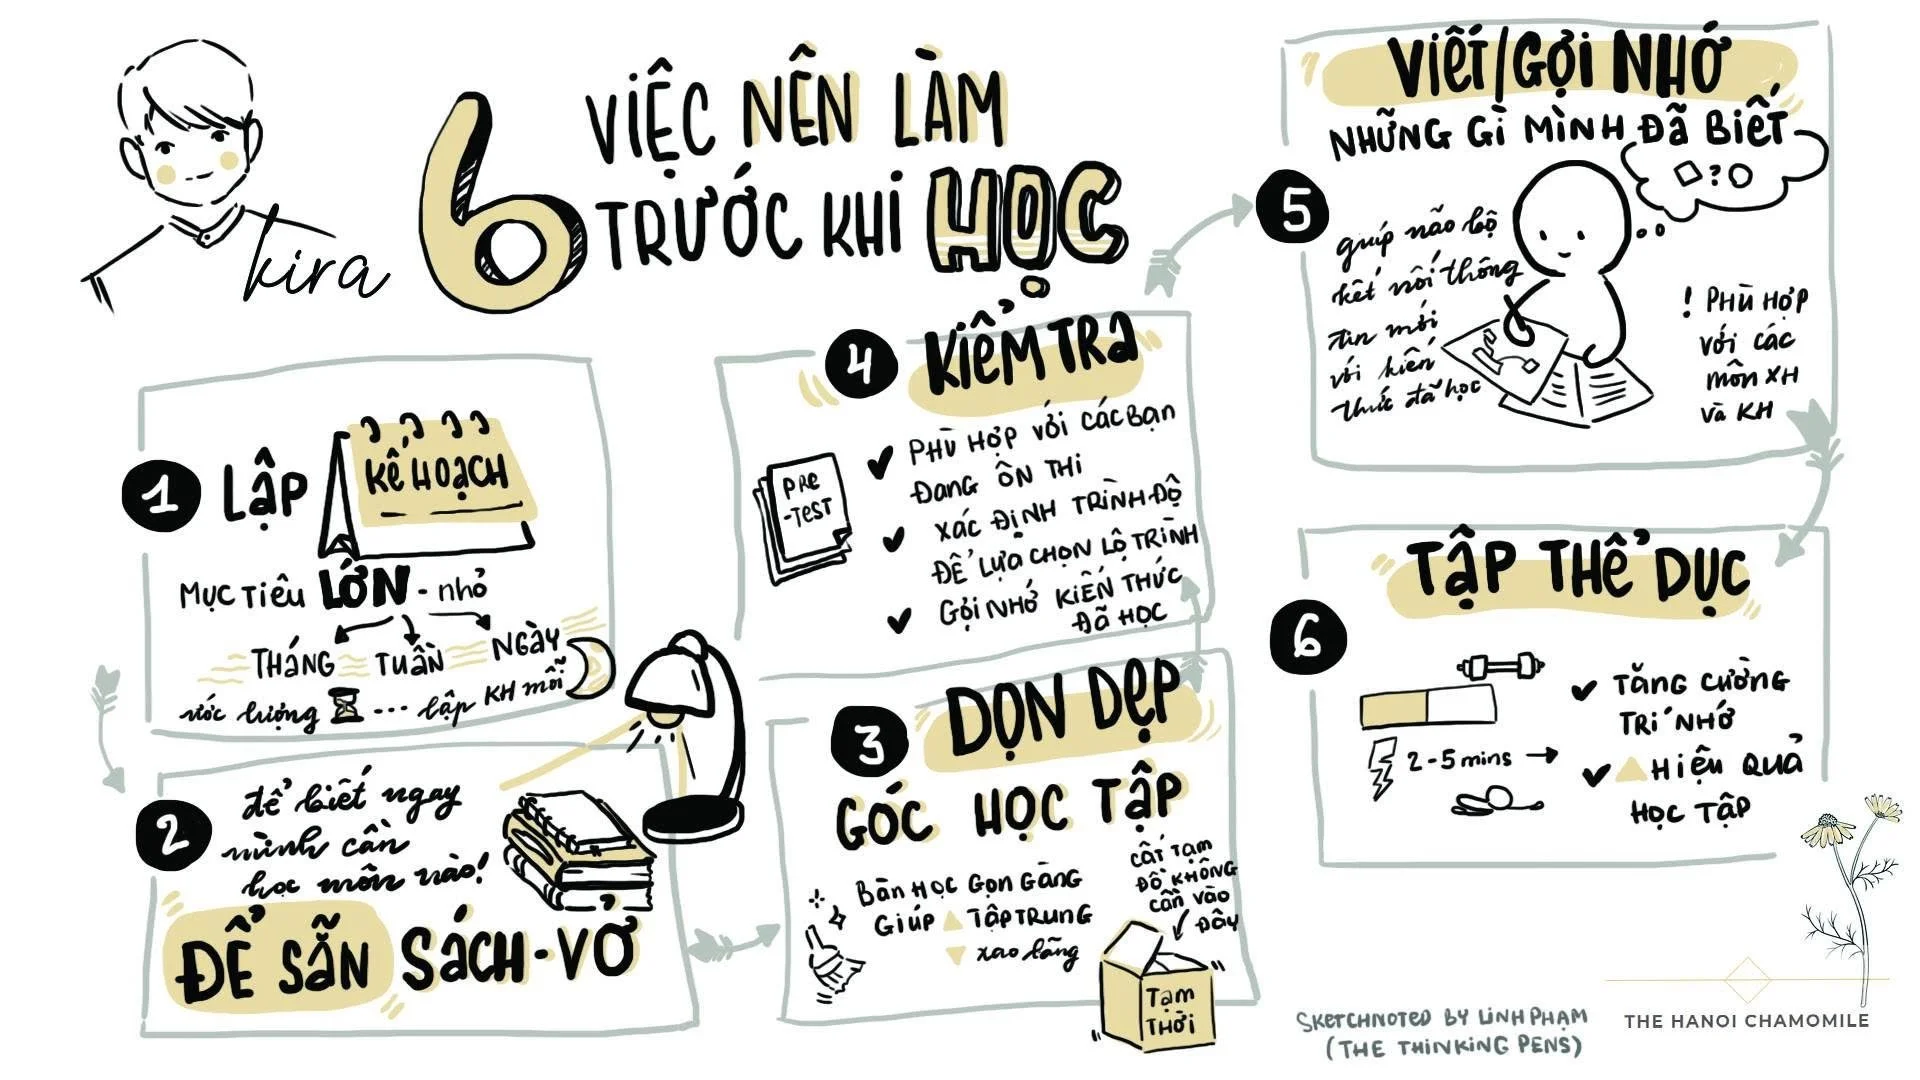 kira
6 VIỆC NÊN LÀM
TRƯỚC KHI HỌC
1 LẬP KẾ HOẠCH
MỤC TIÊU LỚN - nhỏ
THÁNG TUẦN NGÀY
ước lượng ... lập KH mỗi
2 để biết ngay
mình cần
học môn nào!
ĐỂ SẴN SÁCH - VỞ
3 DỌN DẸP
GÓC HỌC TẬP
BÀN HỌC GỌN GÀNG
GIÚP ▲ TẬP TRUNG
▼ xao lãng
CẤT TẠM
ĐỒ KHÔNG
CẦN VÀO
ĐÂY
TẠM
THỜI
4 KIỂM TRA
PRE
-TEST
✔ PHÙ HỢP VỚI CÁC BẠN
ĐANG ÔN THI
✔ XÁC ĐỊNH TRÌNH ĐỘ
ĐỂ LỰA CHỌN LỘ TRÌNH
✔ GỢI NHỚ KIẾN THỨC
ĐÃ HỌC
5 VIẾT/GỢI NHỚ
NHỮNG GÌ MÌNH ĐÃ BIẾT
?
giúp não bộ
kết nối thông
tin mới
với kiến
thức đã học
! PHÙ HỢP
VỚI CÁC
MÔN XH
VÀ KH
6 TẬP THỂ DỤC
2-5 mins →
✔ TĂNG CƯỜNG
TRÍ NHỚ
✔ ▲ HIỆU QUẢ
HỌC TẬP
SKETCHNOTED BY LINH PHẠM
(THE THINKING PENS)
THE HANOI CHAMOMILE